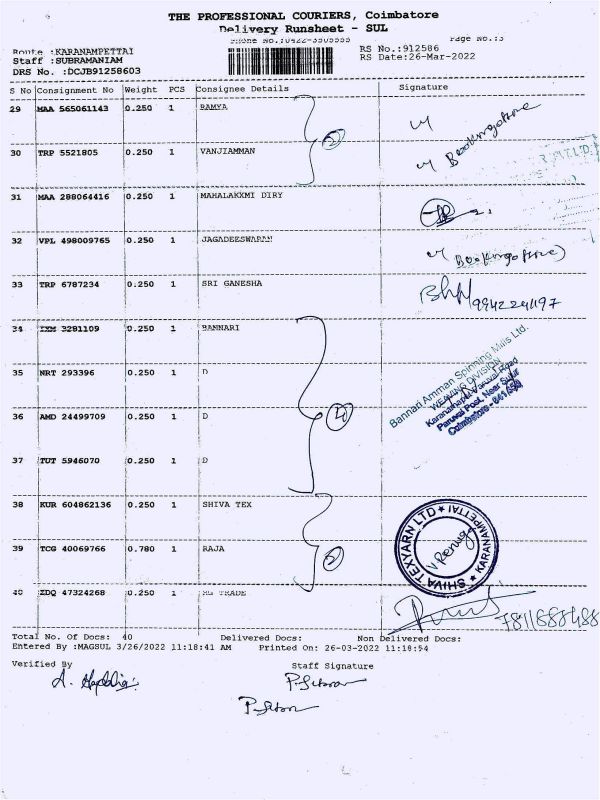 THE PROFESSIONAL COURIERS, Coimbatore
Delivery Runsheet - SUL
Route :KARANAMPETTAI
RS No.:912586
Staff :SUBRAMANIAM
RS Date:26-Mar-2022
DRS No. :DCJB91258603
S No Consignment No Weight PCS Consignee Details Signature
29 MAA 565061143 0.250 1 RAMYA
30 TRP 5521805 0.250 1 VANJIAMMAN
2
31 MAA 288064416 0.250 1 MAHALAKXMI DIRY
32 VPL 498009765 0.250 1 JAGADEESWARAN
33 TRP 6787234 0.250 1 SRI GANESHA
9942241197
34 IXM 3281109 0.250 1 BANNARI
Bannari Amman Spinning Mills Ltd.
WEAVING DIVISION
Karanampet Varuval Road
Paruvai Post, Near Sulur
Coimbatore -
35 NRT 293396 0.250 1 D
36 AMD 24499709 0.250 1 D
4
37 TUT 5946070 0.250 1 D
38 KUR 604862136 0.250 1 SHIVA TEX
SHIVA TEXYARN LTD ★ KARANAMPETTAI ★
39 TCG 40069766 0.780 1 RAJA
2
40 ZDQ 47324268 0.250 1 TRADE
Total No. Of Docs: 40 Delivered Docs: Non Delivered Docs:
Entered By :MAGSUL 3/26/2022 11:18:41 AM Printed On: 26-03-2022 11:18:54
Verified By Staff Signature